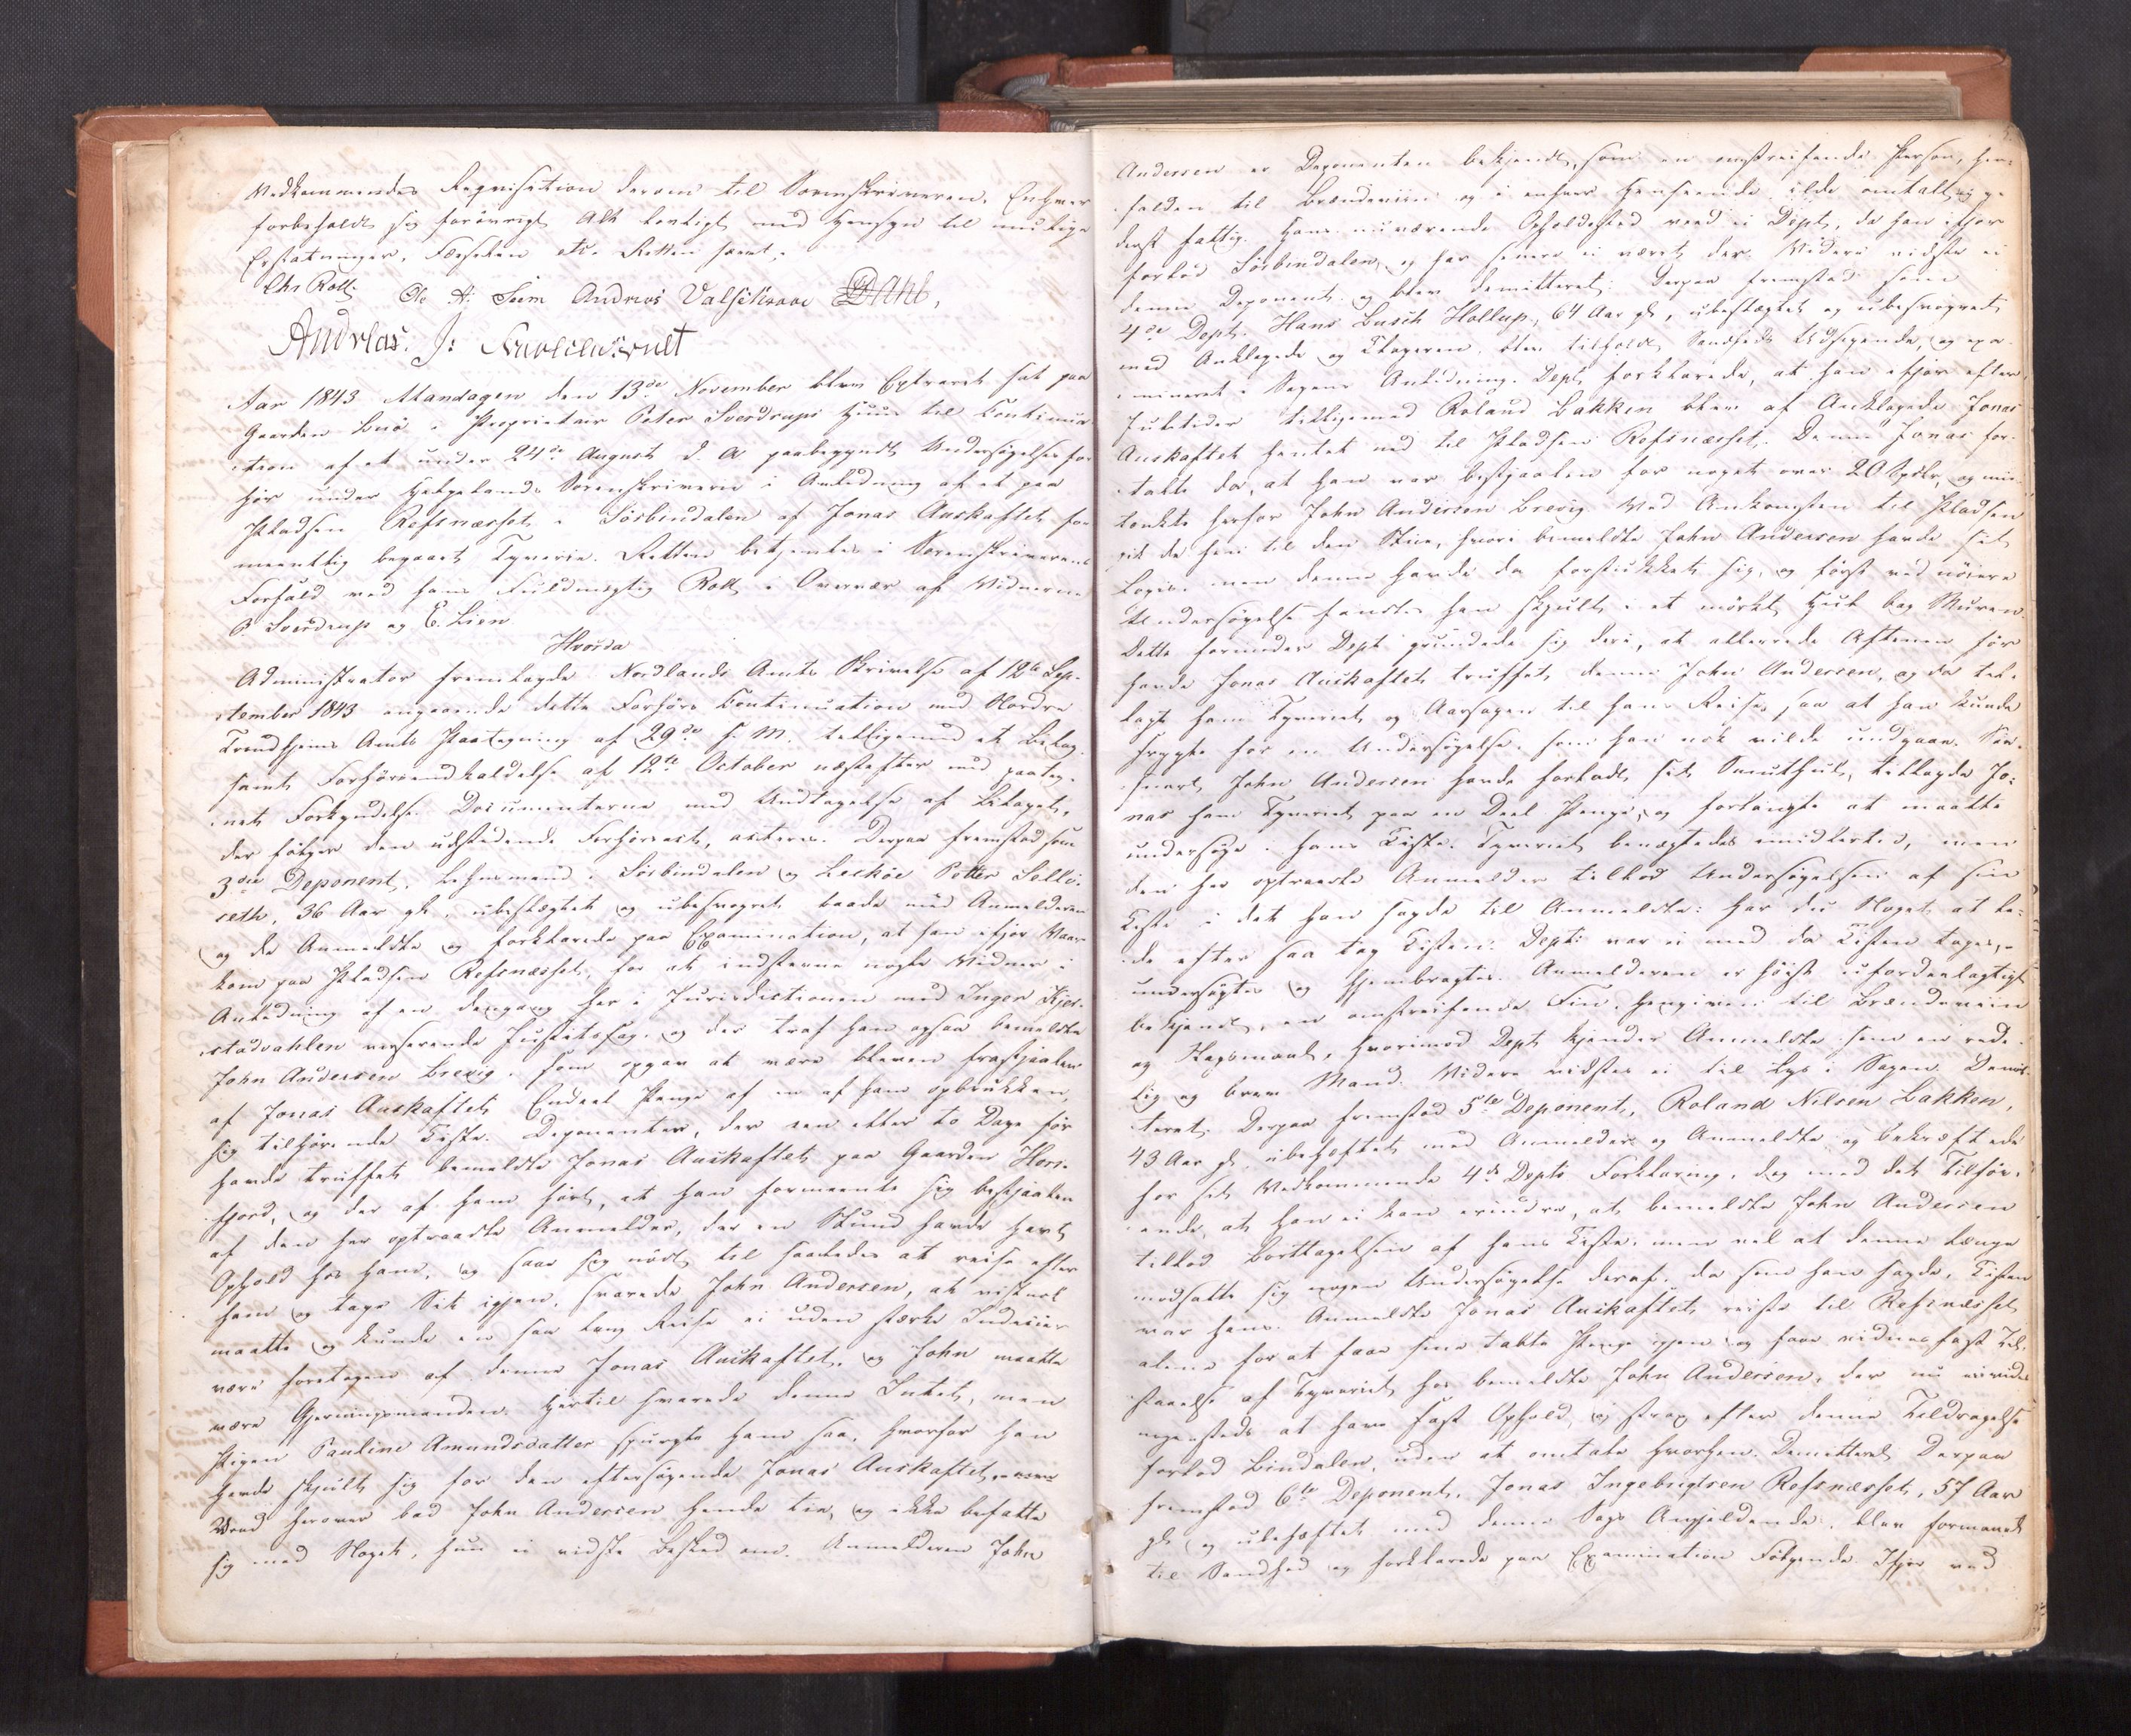 Vedkommendes Requisition derom til Sorenskriveren. Enhver
forbeholdt sig forövrigt Alt lovligt med Hensyn til mulige
Erstatninger. Retten hævet.
Chr Roll Ole A: Seem Andreas Valsikraae
Andreas. J:
Aar 1843 Mandagen den 13de November blev Extraret sat paa
Gaarden Buö i Proprietair Peter Sverdrups Huus til Continua-
tion af et under 24de August d. A. paabegyndt Undersøgelses for-
hör under Helgelands Sorenskriverie i Anledning af et paa
Pladsen Refsnæsset i Sörbindalen af Jonas Auskaftet for-
meentlig begaaet Tyverie. Retten betjentes i Sorenskriverens
Forfald ved hans Fuldmægtig Roll i Overvær af Vidnerne
P. Sverdrup og E. Lien.
Hvorda
Administrator fremlagde Nordlands Amts Skrivelse af 12te Sep-
tember 1843 angaaende dette Forhörs Continuation med Nordre
Trondhjems Amts Paategning af 29de s. M. tilligemed et Bilag
samt Forhörsindkaldelse af 12te October næstefter med paateg-
net Forkyndelse. Documenterne med Undtagelse af Bilaget,
der fölger den udstedende Forhörsact, acteres. Derpaa fremstod som
3die Deponent, Lehnsmand i Sörbindalen og Lecköe Petter Sellö-
seth, 36 Aar gl., ubeslægtet og ubesvogret baade med Anmelderen
og de Anmeldte og forklarede paa Examination, at han ifjor Vaar
kom paa Pladsen Refsnæsset, for at indstevne nogle Vidner i
Anledning af en dengang her i Jurisdictionen med Inger Kjel-
stadvahlen verserende Justitssag, og der traf han ogsaa bemeldte
John Andersen Brevig, som opgav at være bleven frastjaalen
af Jonas Auskaftet Endeel Penge af en af ham opbrukken,
sig tilhörende Kiste. Deponenten, der een eller to Dage för
havde truffet bemeldte Jonas Auskaftet paa Gaarden Hors-
fjord, og der af ham hört, at han formeente sig bestjaalen
af den her optraadte Anmelder, der en Stund havde havt
Ophold hos ham, og saae sig nödt til saaledes at reise efter
ham og tage Sit igjen, svarede John Andersen, at vistnok
maatte og kunde en saa lang Reise ei uden stærke Indicier
være foretagen af denne Jonas Auskaftet, og John maatte
være Gjerningsmanden. Hertil svarede denne Intet, men
Pigen Pauline Amundsdatter spurgte ham saa, hvorfor han
havde skjult sig for den eftersøgende Jonas Auskaftet,
Vred herover bad John Andersen hende tie, og ikke befatte
sig med Noget, hun ei vidste Besked om. Anmelderen John
Andersen er Deponenten bekjendt, som en omstreifende Person, hen-
falden til Brændeviin og i enhver Henseende ilde omtalt og
derhos fattig. Hans nuværende Opholdssted veed ei Dept., da han ifjor
forlod Sörbindalen, og har senere ei været der. Videre vidste ei
denne Deponent, og blev demitteret. Derpaa fremstod som
4de Dept. Hans Busch Hollup, 64 Aar gl., ubeslægtet og ubesvogret
med Anklagede og Klageren, blev tilholdt Sandheds Udsigende, og exa-
mineret i Sagens Anledning. Dept. forklarede, at han ifjor efter
Juletider tilligemed Roland Bakken blev af Anklagede Jonas
Auskaftet hentet med til Pladsen Refsnæsset. Denne Jonas for-
talte da, at han var bestjaalen for noget over 20 Spdlr, og mis-
tænkte herfor John Andersen Brevig. Ved Ankomsten til Pladsen
gik de hen til den Stue, hvori bemeldte John Andersen havde sit
Logis, men denne havde da forstukket sig, og først ved nöiere
Undersøgelse fandtes han skjult i et mörkt Hul bag Muren.
Dette formeder Dept. grundede sig deri, at allerede Aftenen för
havde Jonas Auskaftet truffet denne John Andersen, og da til-
lagt ham Tyveriet og Aarsagen til hans Reise, saa at han kunde
frygte for en Undersøgelse, som han nok vilde undgaae. Saa-
snart John Andersen havde forladt sit Smuthul, tillagde Jo-
nas ham Tyveriet paa en Deel Penge, og forlangte at maatte
undersøge hans Kiste. Tyveriet benægtedes imidlertid, men
den her optraadte Anmelder tillod Undersøgelsen af sin
Kiste i det han sagde til Anmeldte: har du Noget at le-
de efter saa tag Kisten. Dept. var ei med da Kisten toges,
undersøgtes og hjembragtes. Anmelderen er höist ufordeelagtigt
bekjendt, en omstreifende Fin, hengiven til Brændeviin
og Slagsmaal, hvorimod Dept. kjender Anmeldte som en rede-
lig og brav Mand. Videre vidstes ei til Lys i Sagen. Demit-
teret. Derpaa fremstod 5te Deponent, Roland Nilsen Bakken,
43 Aar gl., ubehæftet med Anmelder og Anmeldte og bekræftede
for sit Vedkommende 4de Depts Forklaring, dog med det Tilföi-
ende, at han ei kan erindre, at bemeldte John Andersen
tillod Borttagelsen af hans Kiste, men vel at denne længe
modsatte sig nogen Undersøgelse deraf, da som han sagde, Kisten
var hans. Anmeldte Jonas Auskaftet reiste til Refsnæsset
alene for at faae sine tabte Penge igjen og faae vidnesfast Til-
staaelse af Tyveriet hos bemeldte John Andersen, der nu vides
ingensteds at have fast Ophold, og strax efter denne Tildragelse
forlod Bindalen, uden at omtale hvorhen. Demitteret. Derpaa
fremstod 6te Deponent, Jonas Ingebrigtsen Refsnæsset, 57 Aar
gl. og ubehæftet med denne Sags Angjeldende, blev formanet
til Sandhed og forklarede paa Examination Fölgende. Ifjor ved